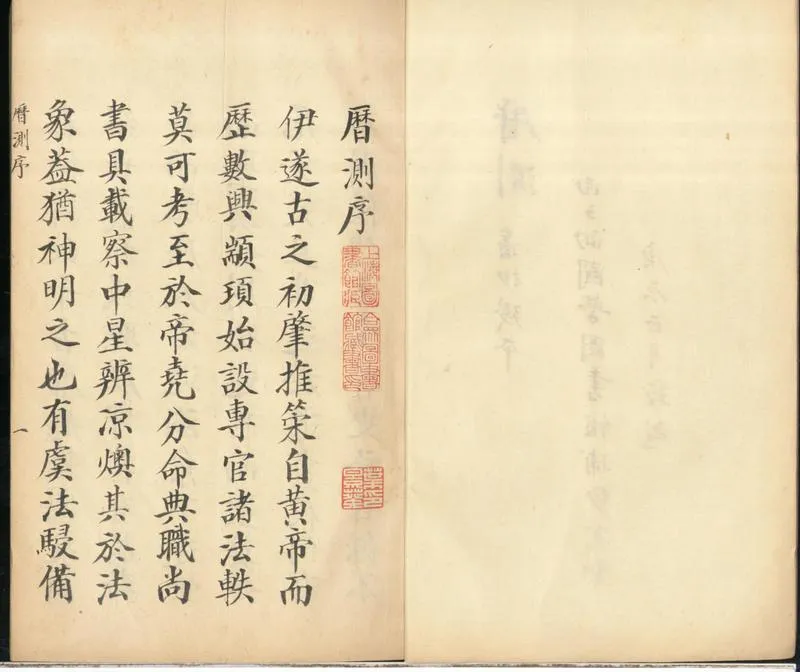 曆測序
伊遂古之初肇推筞自黃帝而
歷數興顓頊始設專官諸法軼
莫可考至於帝堯分命典職尚
書具載察中星辨凉燠其於法
象葢猶神明之也有虞法駸備
曆測序
一